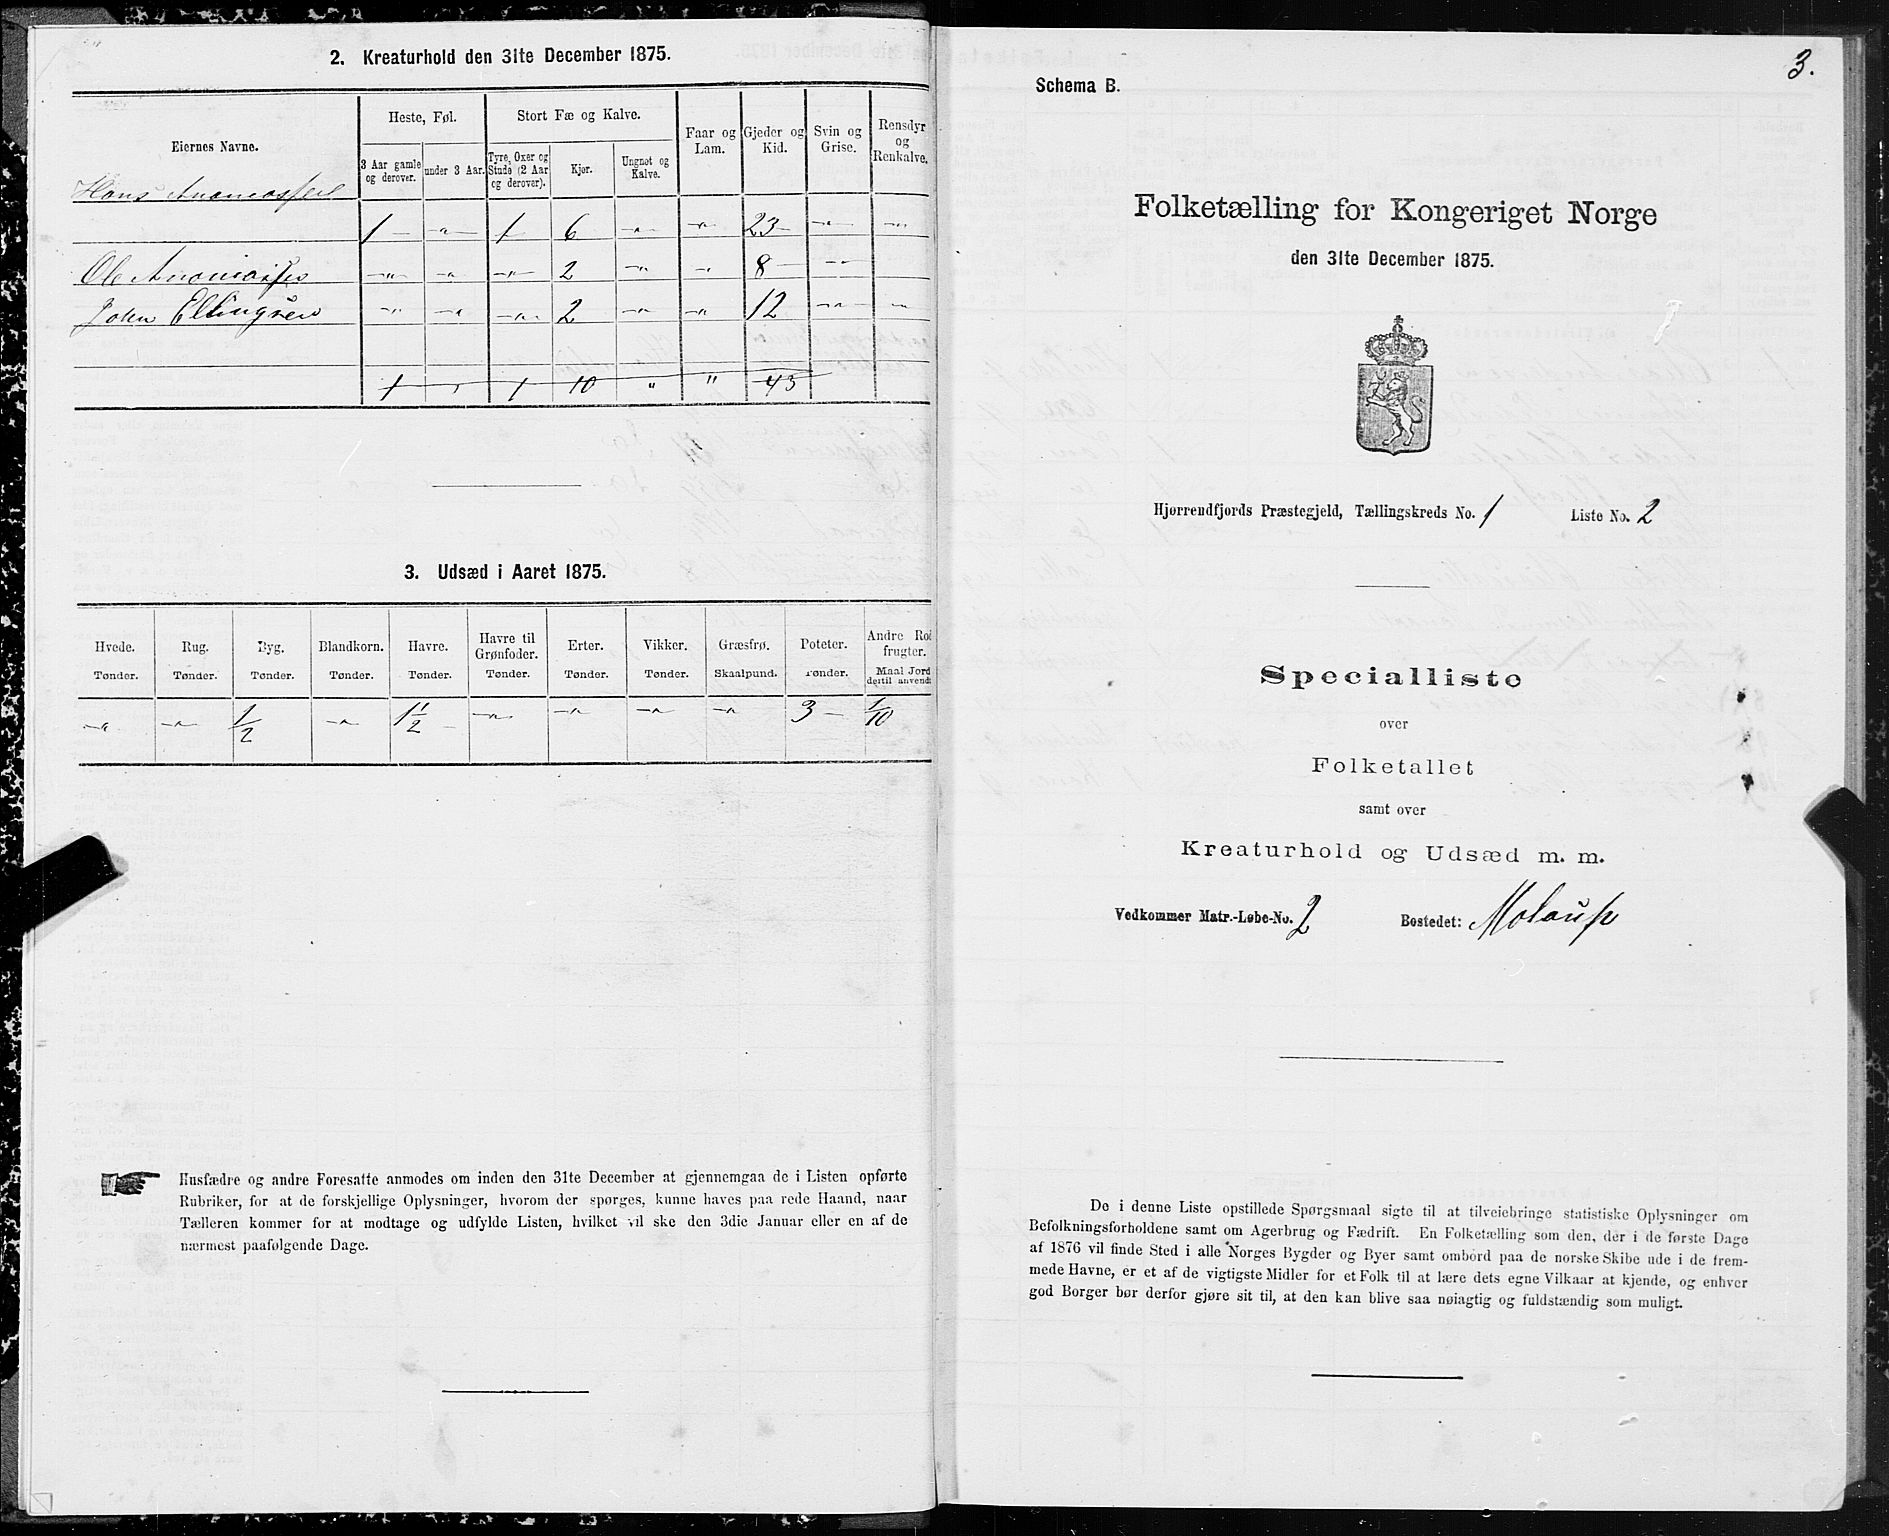 2. Kreaturhold den 31te December 1875.
Eiernes Navne.
Heste, Føl.
Stort Fæ og Kalve.
Faar og Lam.
Gjeder og Kid.
Svin og Grise.
Rensdyr og Renkalve.
3 Aar gamle og derover.
under 3 Aar.
Tyre, Oxer og Stude (2 Aar og derover).
Kjør.
Ungnøt og Kalve.
Hans Ananiassen
1 — " — 1 6 — " — " 23 — " — "
Ole Ananiassen — " — " — " — 2 — " — " 8 — " —
John Ellingsen — " — " — " — 2 — " — " 12 — " — "
1 " 1 10 " " 43
3. Udsæd i Aaret 1875.
Hvede. Rug. Byg. Blandkorn. Havre. Havre til Grønfoder. Erter. Vikker. Græsfrø. Poteter. Andre Rod frugter.
Tønder. Tønder. Tønder. Tønder. Tønder. Tønder. Tønder. Tønder. Skaalpund. Tønder. Maal Jord dertil anvendt
— " — — " — 1/2 — " — 1 1/2 — " — — " — — " — — " — 3 — 1/10
Husfædre og andre Foresatte anmodes om inden den 31te December at gjennemgaa de i Listen opførte
Rubriker, for at de forskjellige Oplysninger, hvorom der spørges, kunne haves paa rede Haand, naar
Tælleren kommer for at modtage og udfylde Listen, hvilket vil ske den 3die Januar eller en af de
nærmest paafølgende Dage.
3.
Schema B.
Folketælling for Kongeriget Norge
den 31te December 1875.
Hjørrendfjords Præstegjeld, Tællingskreds No. 1 Liste No. 2
Specialliste
over
Folketallet
samt over
Kreaturhold og Udsæd m. m.
Vedkommer Matr.-Løbe-No. 2 Bostedet: Molaup
De i denne Liste opstillede Spørgsmaal sigte til at tilveiebringe statistiske Oplysninger om
Befolkningsforholdene samt om Agerbrug og Fædrift. En Folketælling som den, der i de første Dage
af 1876 vil finde Sted i alle Norges Bygder og Byer samt ombord paa de norske Skibe ude i de frem-
mede Havne, er et af de vigtigste Midler for et Folk til at lære dets egne Vilkaar at kjende, og enhver
god Borger bør derfor gjøre sit til, at den kan blive saa nøiagtig og fuldstændig som muligt.